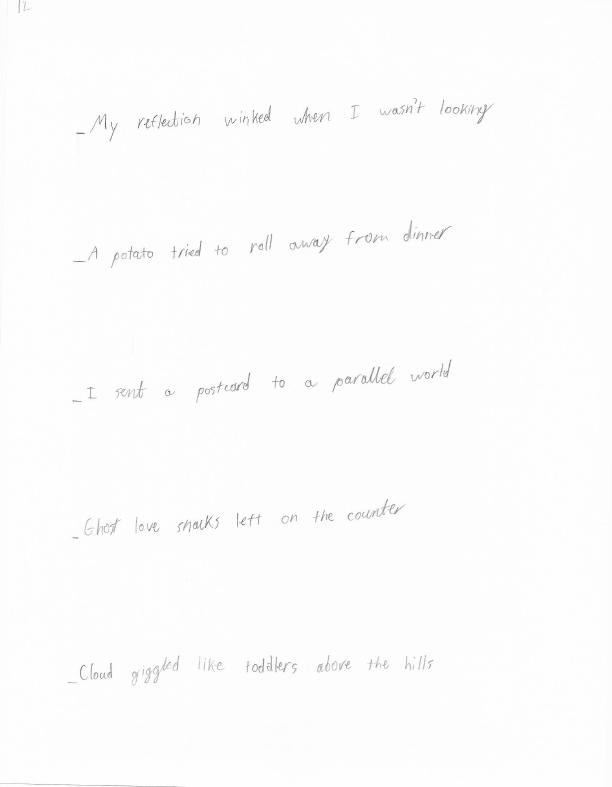 12
_My reflection winked when I wasn't looking
_A potato tried to roll away from dinner
_I sent a postcard to a parallel world
_Ghost love snacks left on the counter
_Cloud giggled like toddlers above the hills